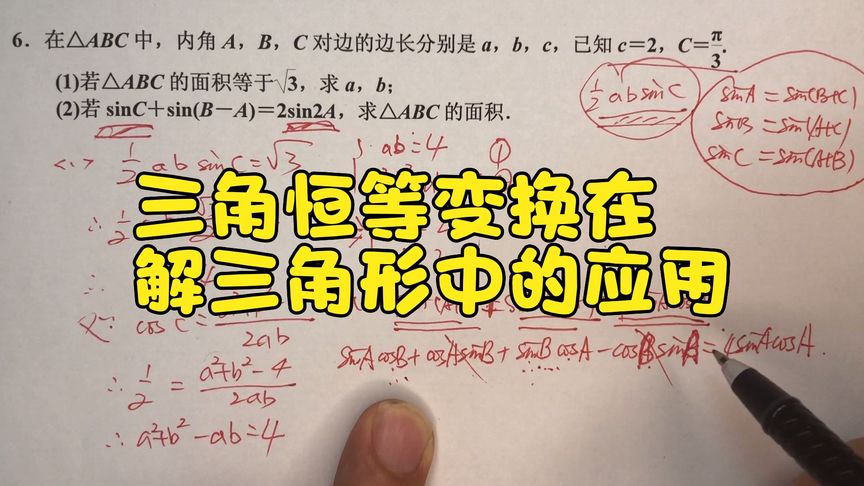 6. 在△ABC 中，内角 A，B，C 对边的边长分别是 a，b，c，已知 c=2，C=π/3.
(1)若△ABC 的面积等于√3，求 a，b；
(2)若 sinC+sin(B－A)=2sin2A，求△ABC 的面积.
1/2 ab sinC
sinA = sin(B+C)
sinB = sin(A+C)
sinC = sin(A+B)
<1> 1/2 ab sinC = √3
ab = 4 ①
三角恒等变换在
解三角形中的应用
∴ 1/2
又∵ cosC =
2ab
∴ 1/2 = a²+b²-4 / 2ab
∴ a²+b²-ab=4
sinA cosB + cosA sinB + sinB cosA - cosB sinA = 4 sinA cosA.